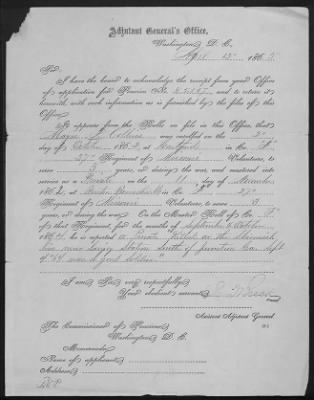 Adjutant General's Office,
Washington, D. C.
April 12th 1865
Sir:
I have the honor to acknowledge the receipt from your Office
of application for Pension No. and to return it
herewith, with such information as is furnished by the files of this
Office.
It appears from the Rolls on file in this Office, that
Collins was enrolled on the 2
day of October, 1862, at in Co.
27th Regiment of Missouri Volunteers, to
serve 3 years, or during the war, and mustered into
service as a Private on the 11 day of November
1862, at Benton Barracks in Co. 27
Regiment of Missouri Volunteers, to serve 3
years, or during the war. On the Muster Roll of Co.
of that Regiment, for the months of September & October,
1864, he is reported a Private "Killed on the Skirmish
line near Station South of Ga. Sept
"64 was a good soldier"
I am, Sir, very respectfully,
Your obedient servant,
Assistant Adjutant General.
The Commissioner of Pensions,
Washington, D. C.
Memoranda:
Name of applicant
Address